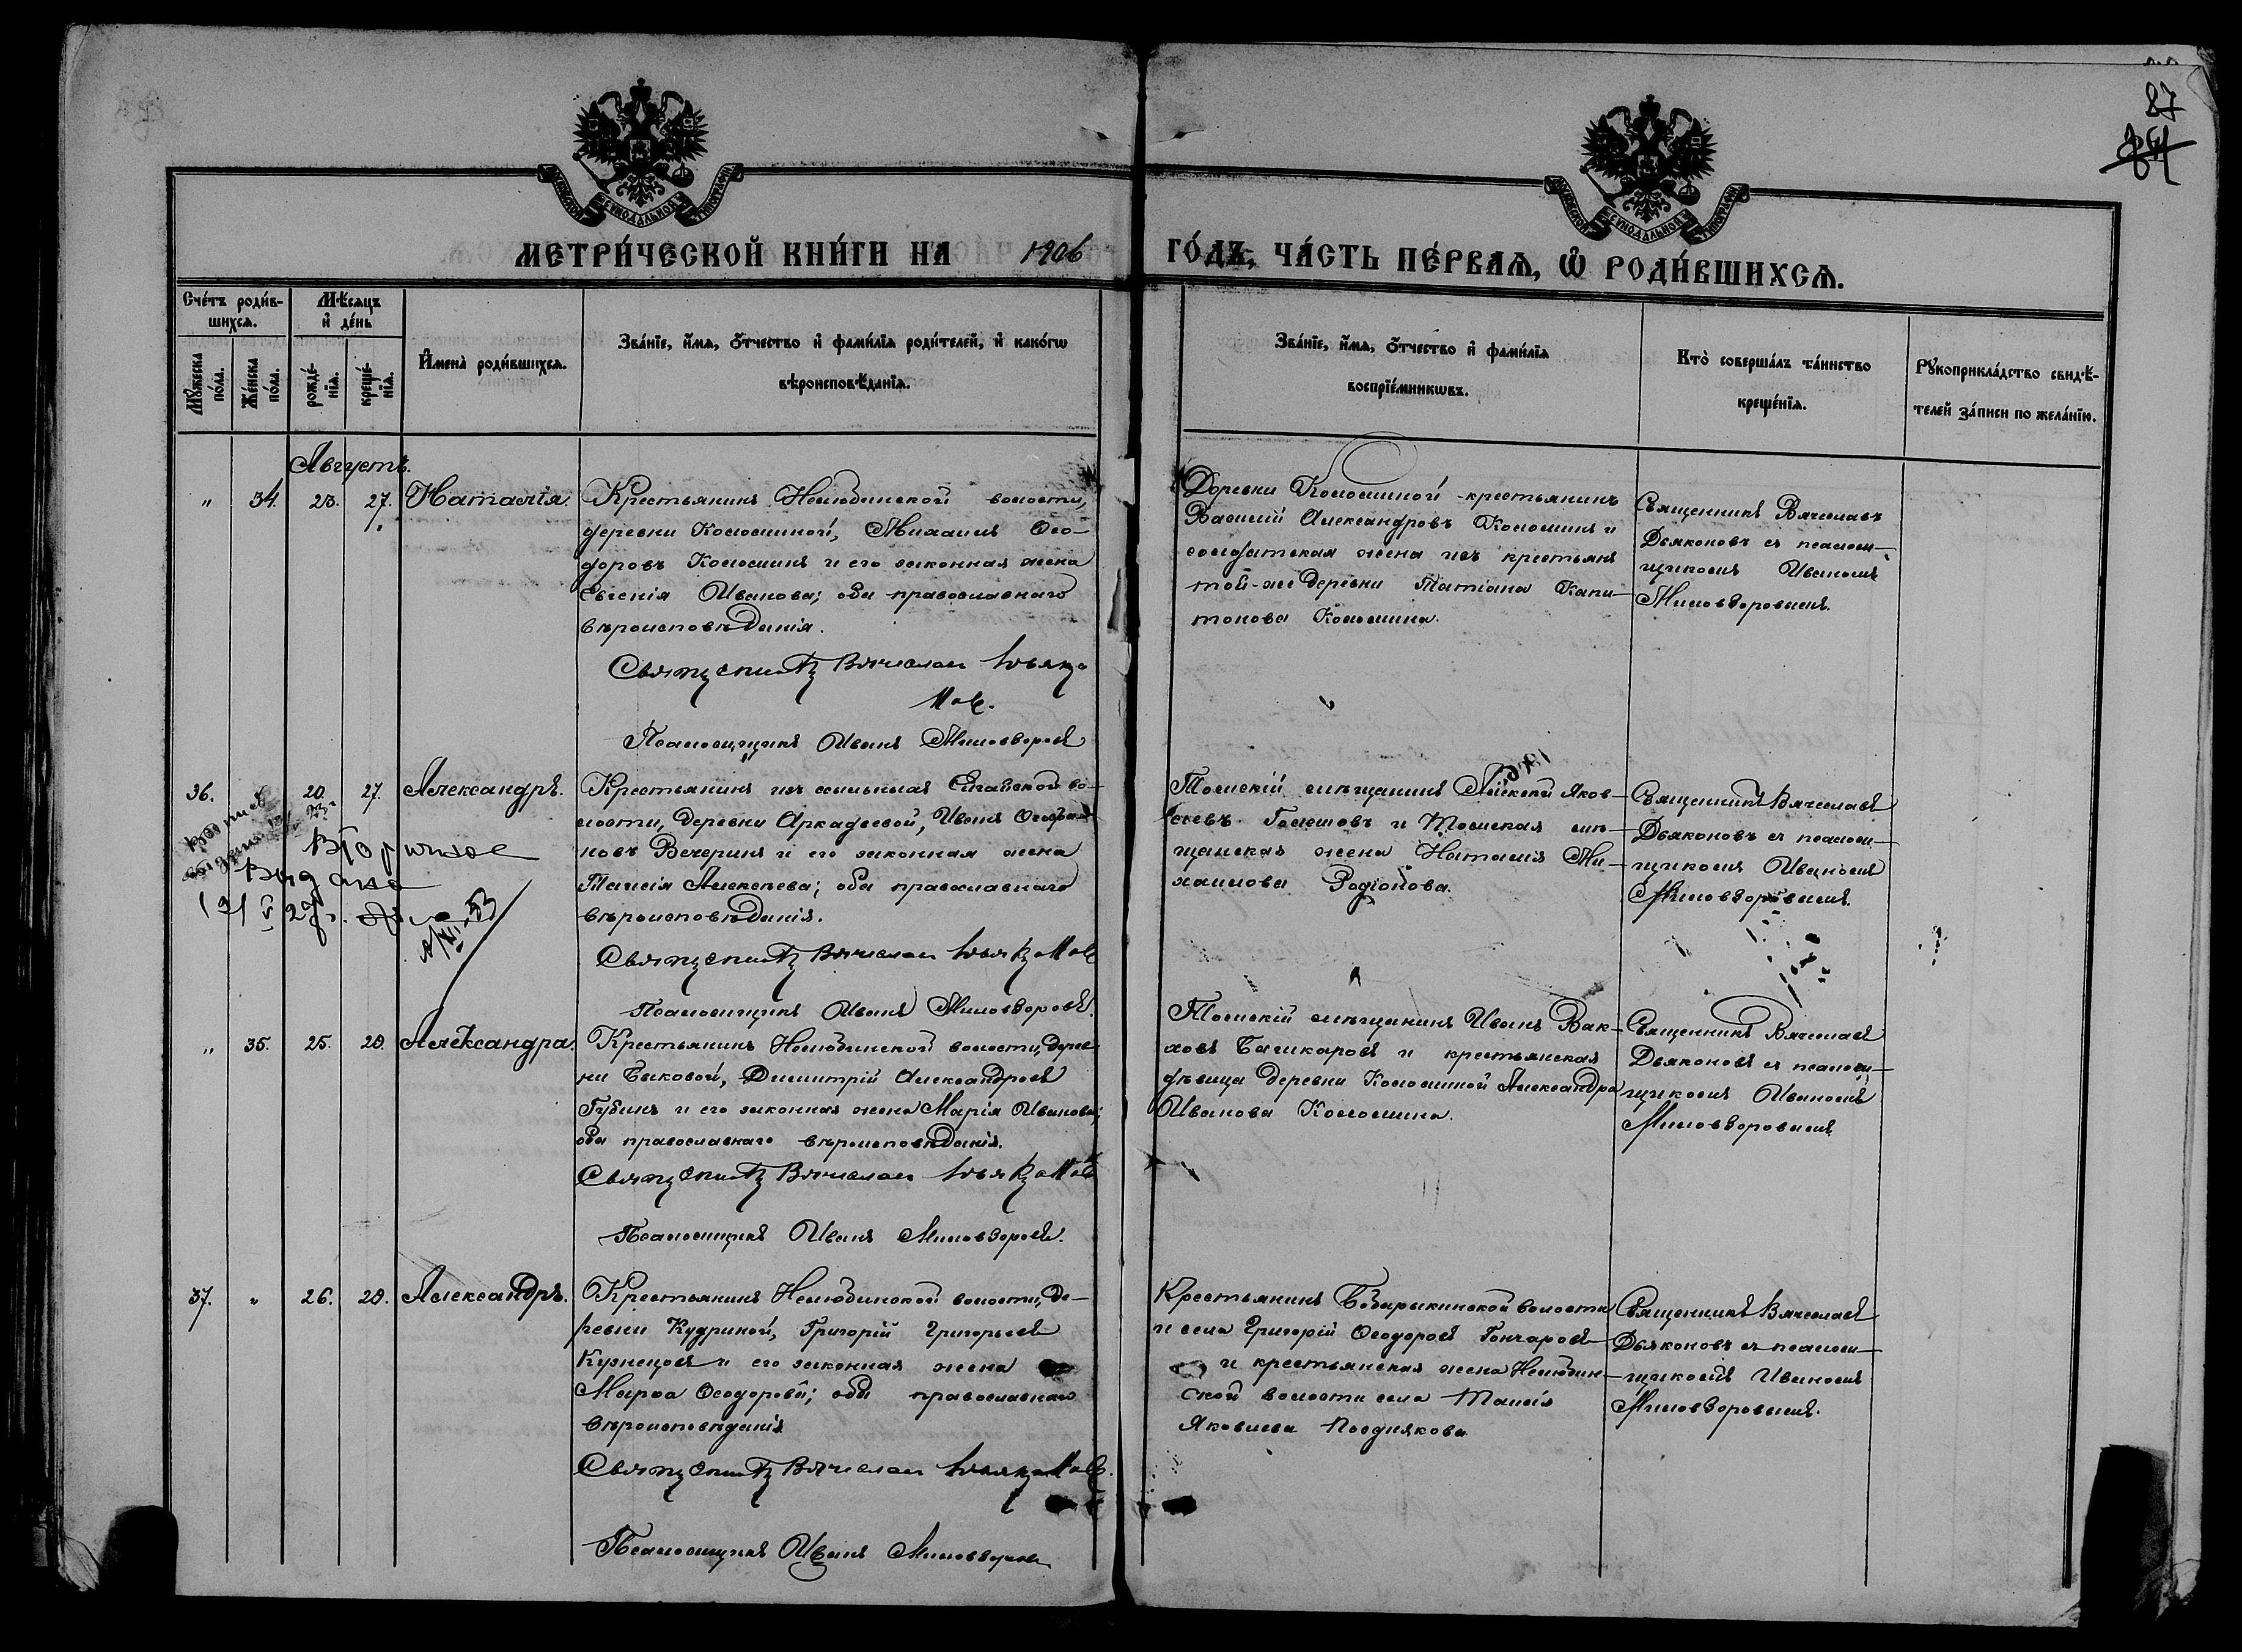 87
МЕТРИ́ЧЕСКОЙ КНИ́ГИ НА 1906 ГО́ДЪ, ЧА́СТЬ ПЕ́РВАѦ, Ѡ҆ РОДИ́ВШИХСѦ.
Сче́тъ роди́в-
шихся.
Мѣ́сяцъ
и҆ де́нь
Му́жеска
по́ла.
Же́нска
по́ла.
рожде́-
нїя.
креще́-
нїя.
И҆мена̀ роди́вшихся.
Зва́нїе, и҆́мя, ѻ҆́тчество и҆ фами́лїя роди́телей, и҆ како́гѡ
вѣроисповѣ́данїя.
Зва́нїе, и҆́мя, ѻ҆́тчество и҆ фами́лїя
воспрїе́мникѡвъ.
Кто̀ соверша́лъ та́инство
креще́нїя.
Рꙋкоприкла́дство свидѣ́-
телей за́писи по жела́нїю.
Августъ.
" 34. 23. 27. Наталія.
Крестьянинъ Нелюбинской волости,
деревни Коломиной, Михаилъ Ѳео-
доровъ Коломинъ и его законная жена
Евгенія Иванова; оба православнаго
вѣроисповѣданія.
Священникъ Вячеслав Дьяко
нов.
Псаломщикъ Иванъ Миловзоровъ
Деревни Коломиной крестьянинъ
Василій Александровъ Коломинъ и
солдатская жена изъ крестьянъ
той-же деревни Татіана Капи-
тонова Коломина.
Священникъ Вячеславъ
Дьяконовъ съ псалом-
щикомъ Иваномъ
Миловзоровымъ.
36. 20. 27. Александръ.
Крестьянинъ изъ ссыльныхъ Елгайской во-
лости, деревни Аркадьевой, Иванъ
новъ Вечеринъ и его законная жена
Таисія Алексѣева; оба православнаго
вѣроисповѣданія.
Священникъ Вячеслав Дьяконов
Псаломщикъ Иванъ Миловзоровъ.
Вторичное
Выдана
Томскій мѣщанинъ Алексѣй Яков-
левъ Голешовъ и Томская мѣ-
щанская жена Наталія Ми-
хаилова Родіонова.
Священникъ Вячеславъ
Дьяконовъ съ псалом-
щикомъ Иваномъ
Миловзоровымъ.
" 35. 25. 28. Александра.
Крестьянинъ Нелюбинской волости, дерев-
ни Быковой, Димитрій Александровъ
Губинъ и его законная жена Марія Иванова;
оба православнаго вѣроисповѣданія.
Священникъ Вячеслав Дьяконов
Псаломщикъ Иванъ Миловзоровъ.
Томскій мѣщанинъ Иванъ
Башкаровъ и крестьянская
дѣвица деревни Коломиной Александра
Иванова Коломина.
Священникъ Вячеславъ
Дьяконовъ съ псалом-
щикомъ Иваномъ
Миловзоровымъ
37. " 26. 28. Александръ.
Крестьянинъ Нелюбинской волости, де-
ревни Кудриной, Григорій Григорьевъ
Кузнецовъ и его законная жена
Марѳа Ѳеодорова; оба православнаго
вѣроисповѣданія
Священникъ Вячеслав Дьяконов.
Псаломщикъ Иванъ Миловзоровъ
Крестьянинъ Бобарыкинской волости
и села Григорій Ѳеодоровъ Гончаровъ
и крестьянская жена Нелюбин-
ской волости села Таисія
Яковлева Позднякова
Священникъ Вячеславъ
Дьяконовъ съ псалом-
щикомъ Иваномъ
Миловзоровымъ.